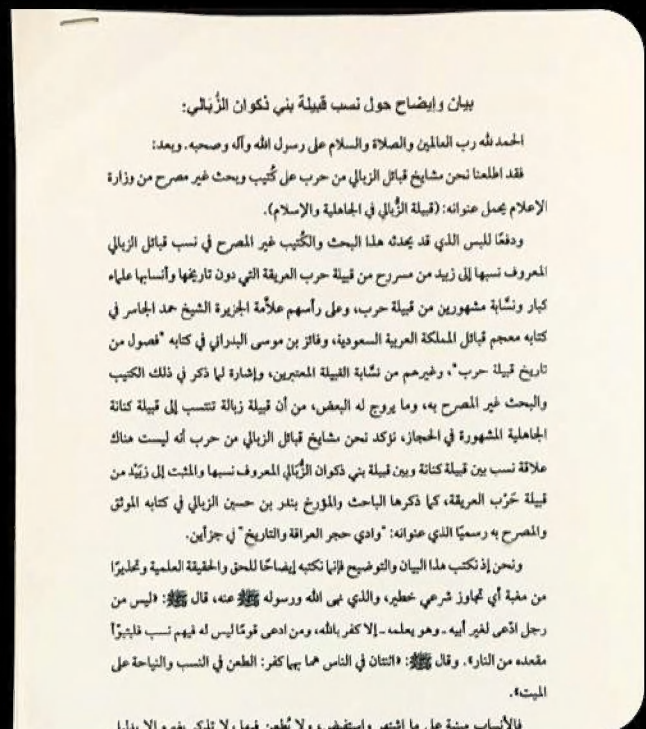 بيان وإيضاح حول نسب قبيلة بني ذكوان الزُّبَالي:
الحمد لله رب العالمين والصلاة والسلام على رسول الله وآله وصحبه. وبعد:
فقد اطلعنا نحن مشايخ قبائل الزبالي من حرب على كُتيب وبحث غير مصرح من وزارة
الإعلام يحمل عنوانه: (قبيلة الزُّبالي في الجاهلية والإسلام).
ودفعًا للبس الذي قد يحدثه هذا البحث والكُتيب غير المصرح في نسب قبائل الزبالي
المعروف نسبها إلى زبيد من مسروح من قبيلة حرب العريقة التي دون تاريخها وأنسابها علماء
كبار ونسَّابة مشهورين من قبيلة حرب، وعلى رأسهم علاَّمة الجزيرة الشيخ حمد الجاسر في
كتابه معجم قبائل المملكة العربية السعودية، وفائز بن موسى البدراني في كتابه "فصول من
تاريخ قبيلة حرب"، وغيرهم من نسَّابة القبيلة المعتبرين، وإشارة لما ذكر في ذلك الكتيب
والبحث غير المصرح به، وما يروج له البعض، من أن قبيلة زبالة تنتسب إلى قبيلة كنانة
الجاهلية المشهورة في الحجاز، نؤكد نحن مشايخ قبائل الزبالي من حرب أنه ليست هناك
علاقة نسب بين قبيلة كنانة وبين قبيلة بني ذكوان الزُّبَالي المعروف نسبها والمثبت إلى زُبَيْد من
قبيلة حَرْب العريقة، كما ذكرها الباحث والمؤرخ بندر بن حسين الزبالي في كتابه الموثق
والمصرح به رسميًا الذي عنوانه: "وادي حجر العراقة والتاريخ" في جزأين.
ونحن إذ نكتب هذا البيان والتوضيح فإنما نكتبه إيضاحًا للحق والحقيقة العلمية وتحذيرًا
من مغبة أي تجاوز شرعي خطير، والذي نهى الله ورسوله ﷺ عنه، قال ﷺ: «ليس من
رجل ادّعى لغير أبيه ـ وهو يعلمه ـ إلا كفر بالله، ومن ادعى قومًا ليس له فيهم نسب فليتبوّأ
مقعده من النار». وقال ﷺ: «اثنتان في الناس هما بهما كفر: الطعن في النسب والنياحة على
الميت».
فالأنساب مبنية على ما اشتهر واستفيض، ولا يُطعن فيها،